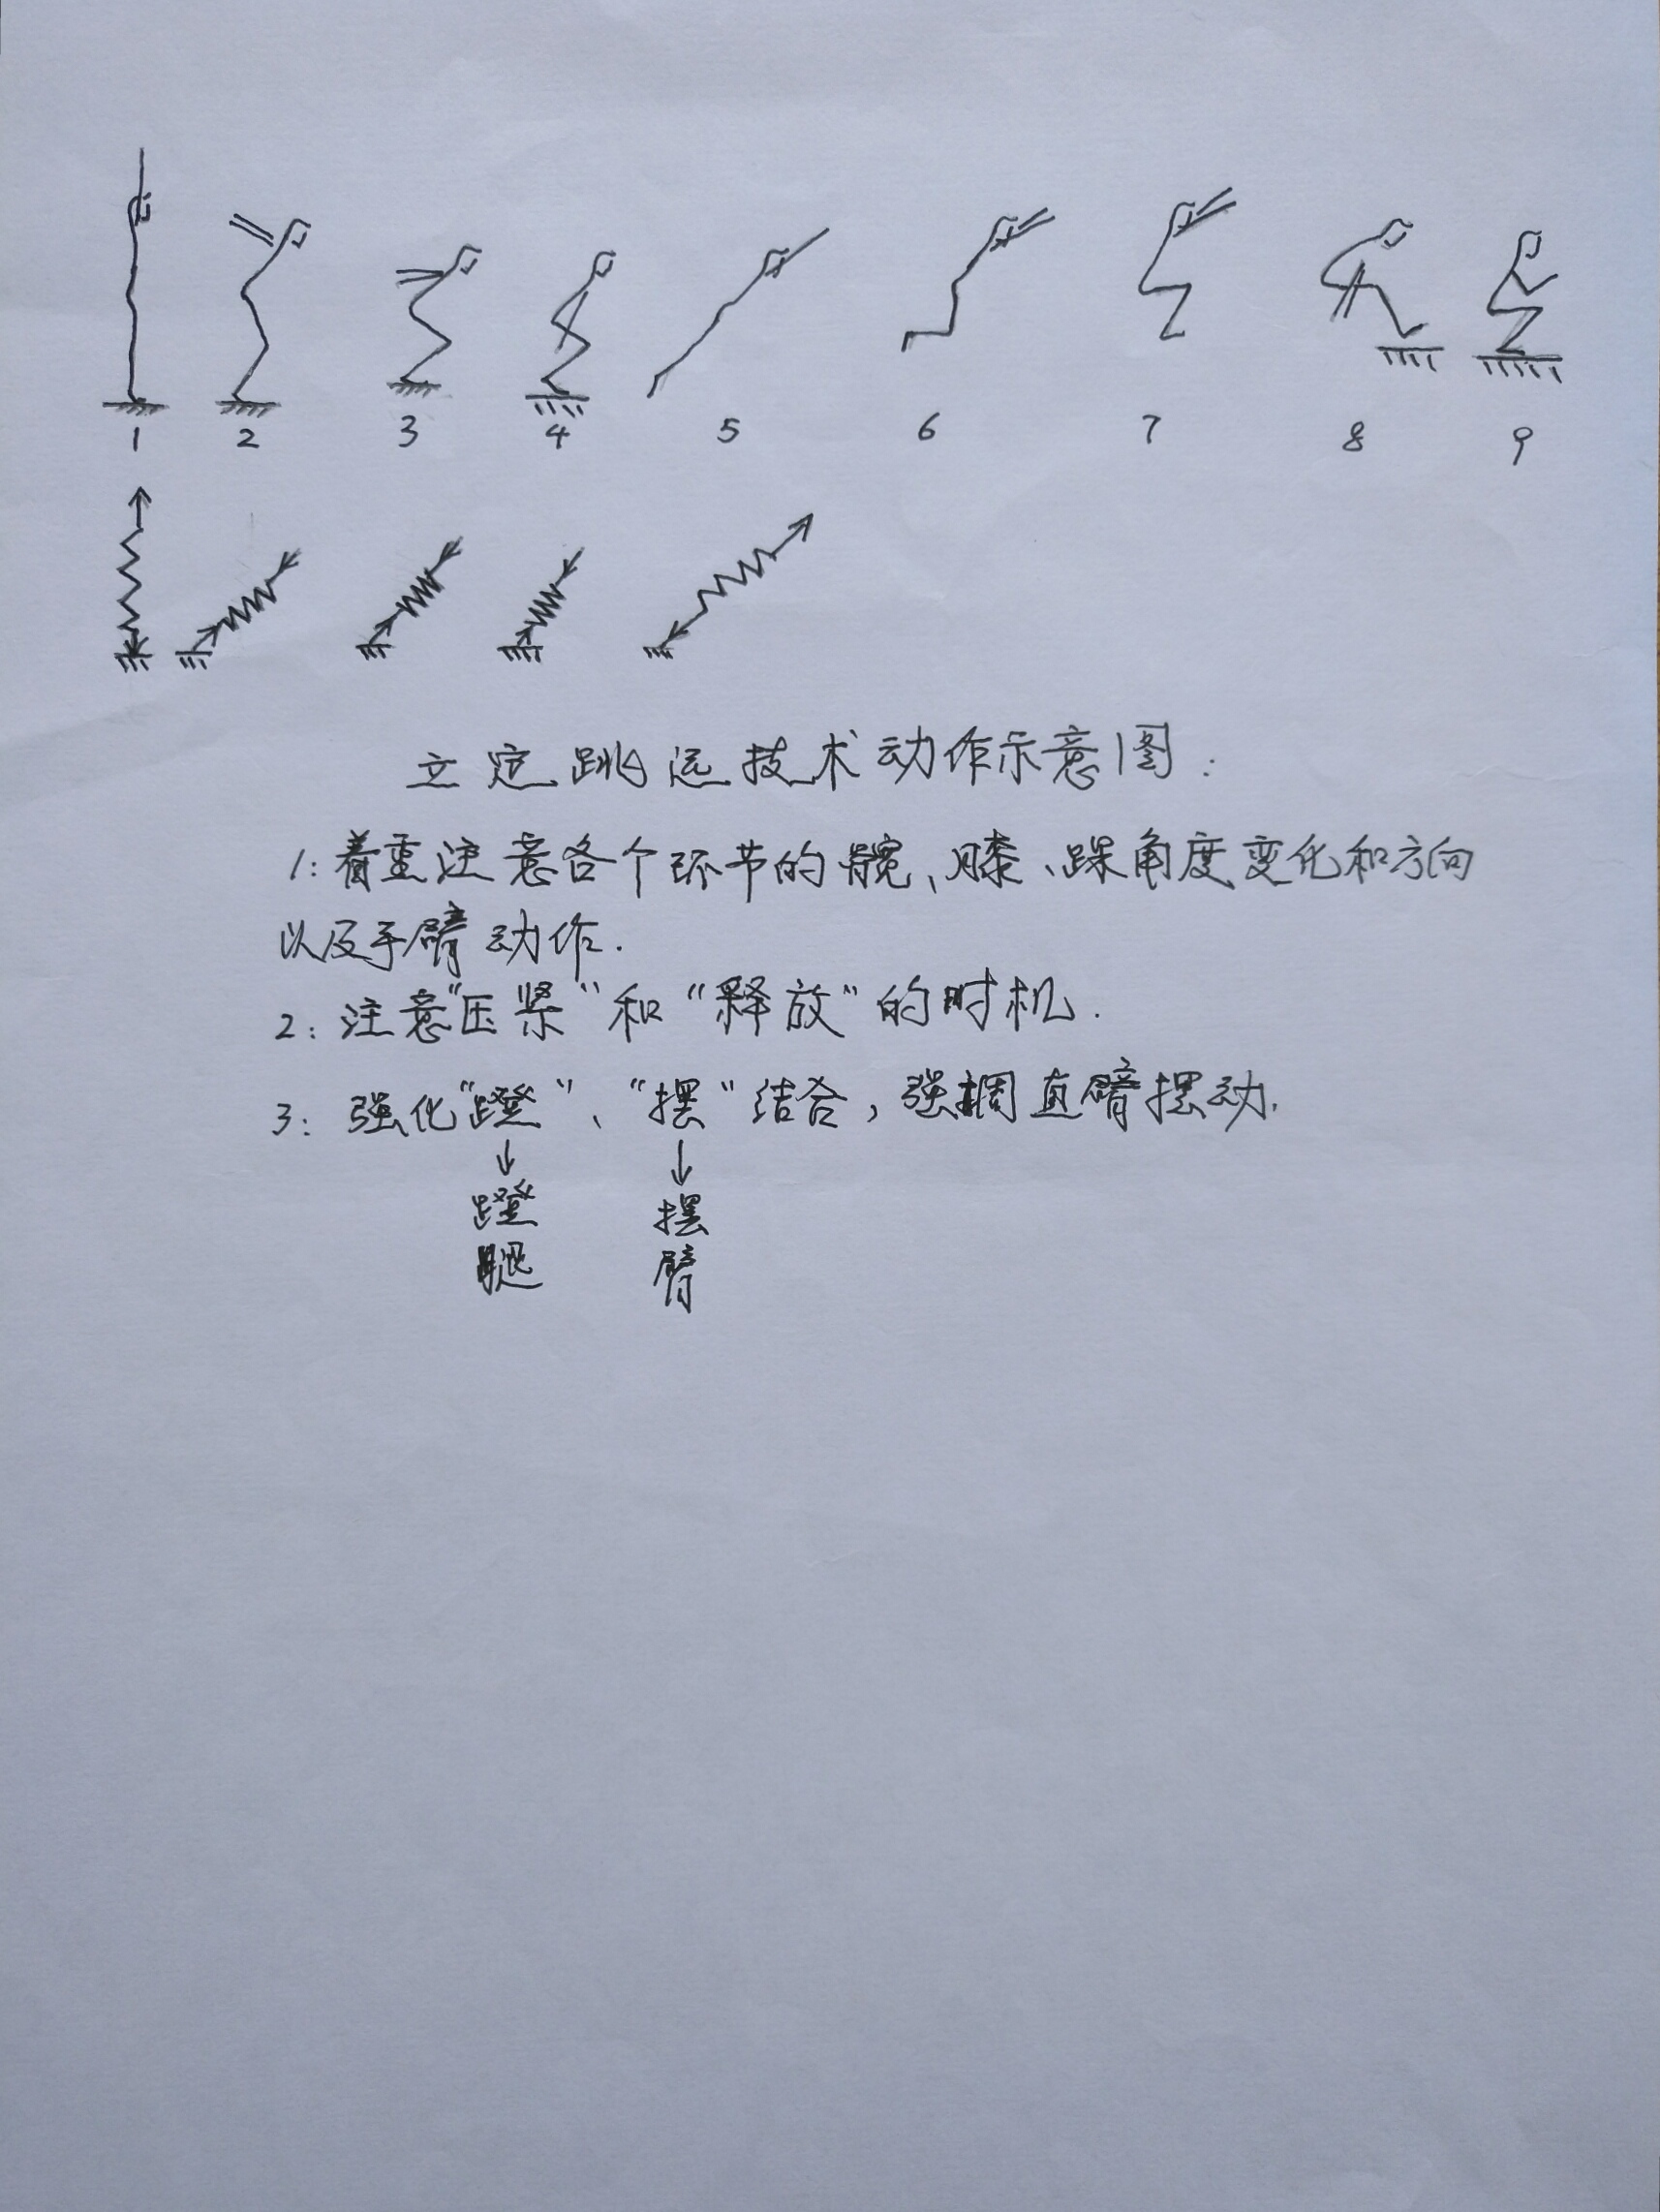 1 2 3 4 5 6 7 8 9
立定跳远技术动作示意图:
1:着重注意各个环节的髋、膝、踝角度变化和方向
以及手臂动作.
2:注意"压紧"和"释放"的时机.
3:强化"蹬"、"摆"结合,强调直臂摆动.
↓ ↓
蹬 摆
腿 臂